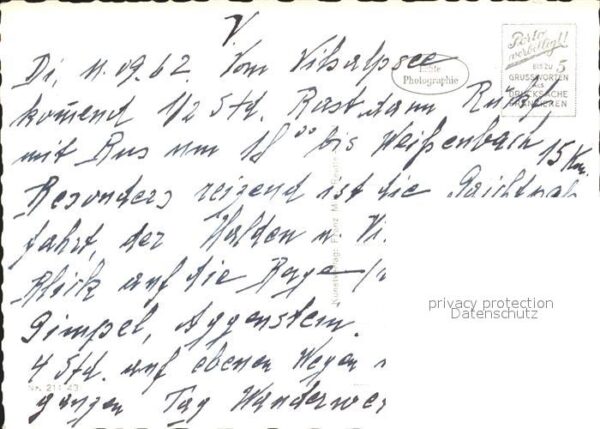 V
Di, 11.09.62. Vom Vilsalpsee
komend 1/2 Std. Rast dann Rückf
mit Bus um 18⁰⁰ bis Weißenbach 15 Km.
Besonders reizend ist die Gaichtpaß
fahrt, der Halden u. Vi
Blick auf die Berge
Gimpel, Aggenstein.
4 Std. auf ebenen Wegen
ganzen Tag Wanderwe
Echte
Photographie
Porto
verbilligt!
BIS ZU 5
GRUSSWORTEN
ALS
DRUCKSACHE
FRANKIEREN
privacy protection
Datenschutz